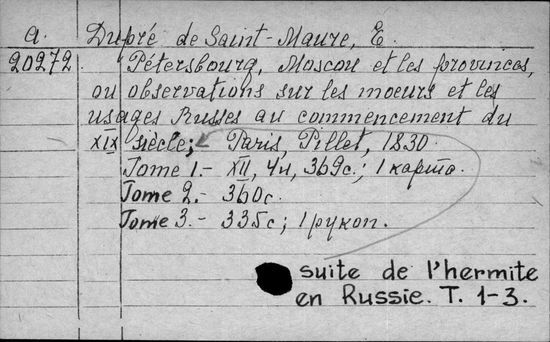 a. Dupré de Saint-Maure, E.
20272 Pétersbourg, Moscou et les provinces,
ou observations sur les moeurs et les
usages Russes au commencement du
XIX siècle; Paris, Pillet, 1830.
Tome 1.- XII, 4н, 369с.; 1 карта.
Tome 2.- 360с.
Tome 3.- 335с; 1 рукоп.
suite de l'hermite
en Russie. T. 1-3.